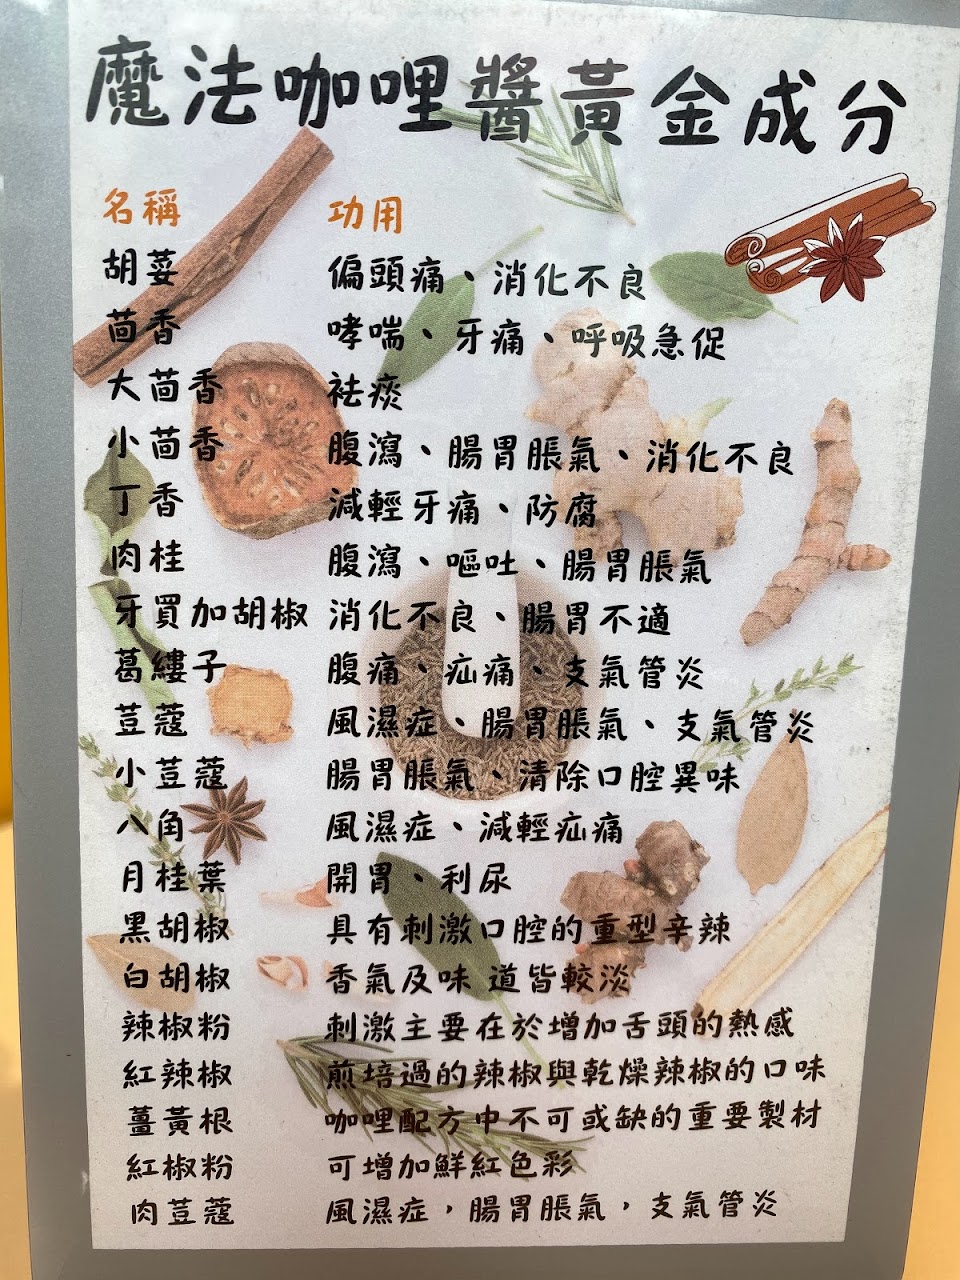 魔法咖哩醬黃金成分
名稱 功用
胡荽 偏頭痛、消化不良
茴香 哮喘、牙痛、呼吸急促
大茴香 祛痰
小茴香 腹瀉、腸胃脹氣、消化不良
丁香 減輕牙痛、防腐
肉桂 腹瀉、嘔吐、腸胃脹氣
牙買加胡椒 消化不良、腸胃不適
葛縷子 腹痛、疝痛、支氣管炎
荳蔻 風濕症、腸胃脹氣、支氣管炎
小荳蔻 腸胃脹氣、清除口腔異味
八角 風濕症、減輕疝痛
月桂葉 開胃、利尿
黑胡椒 具有刺激口腔的重型辛辣
白胡椒 香氣及味 道皆較淡
辣椒粉 刺激主要在於增加舌頭的熱感
紅辣椒 煎培過的辣椒與乾燥辣椒的口味
薑黃根 咖哩配方中不可或缺的重要製材
紅椒粉 可增加鮮紅色彩
肉荳蔻 風濕症，腸胃脹氣，支氣管炎